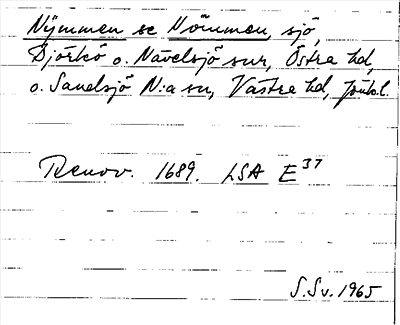 Nymmen se Nömmen, sjö,
Björkö o. Nävelsjö snr, Östra hd,
o. Sandsjö N:a sn, Västra hd, Jönk.l.
Renov. 1689. LSA E 37
S.Sv. 1965